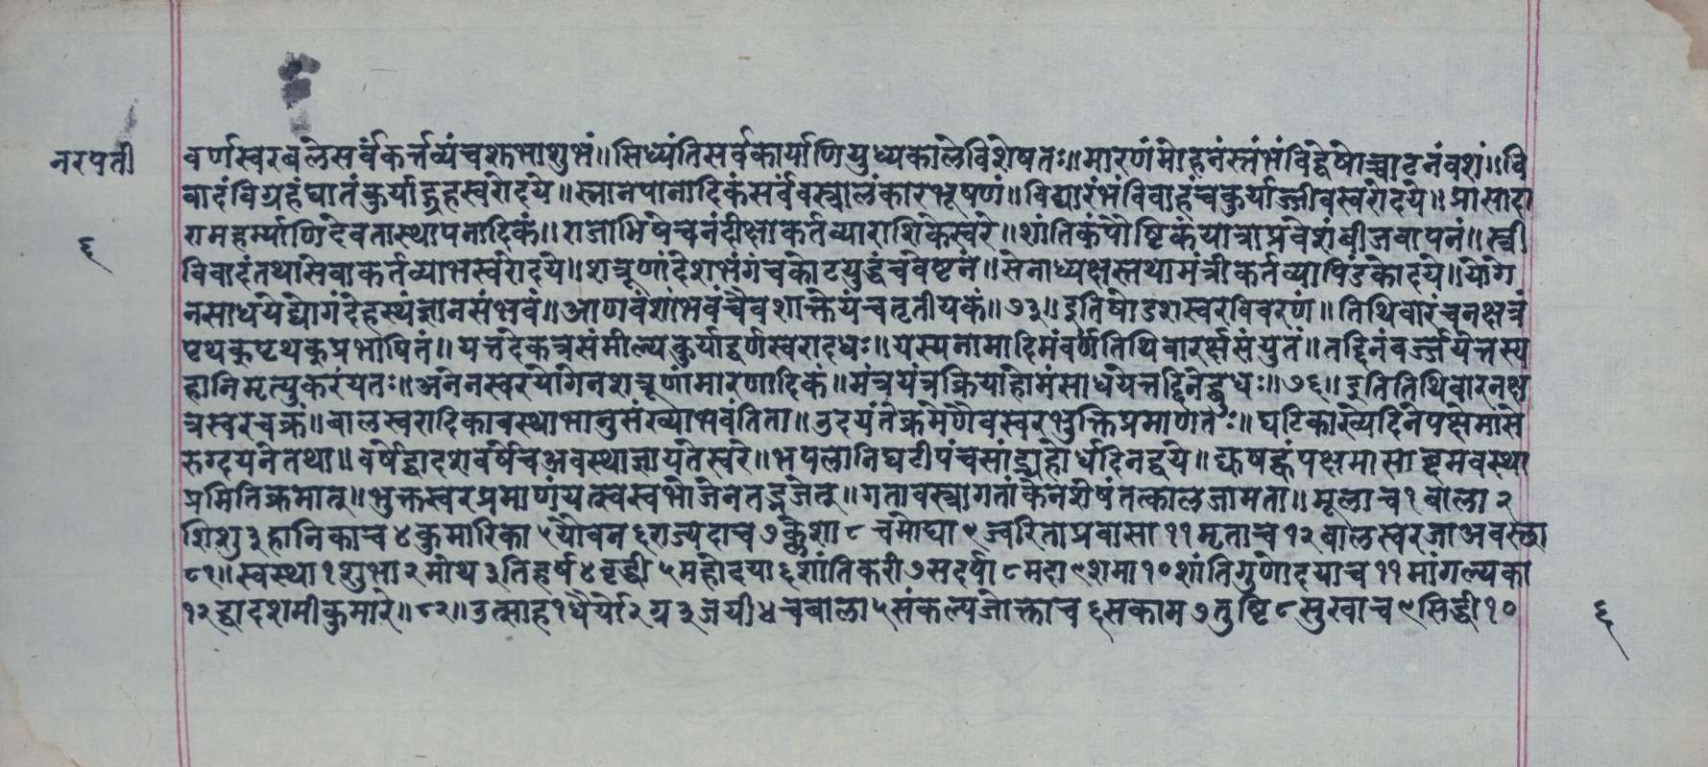 नरपती
वर्णस्वरबलेसर्वंकर्त्तव्यंचशुभाशुभं॥सिध्यंतिसर्वकार्याणियुध्यकालेविशेषतः॥मारणंमोहनंस्तंभंविद्वेषोच्चाटनंवशं॥वि
वादंविग्रहंघातंकुर्याद्ग्रहस्वरोदये॥स्नानपानादिकंसर्वंवस्त्रालंकारभूषणं॥विद्यारंभंविवाहंचकुर्याज्जीवस्वरोदये॥प्रासादा
रामहर्म्याणिदेवतास्थापनादिकं॥राजाभिषेचनंदीक्षाकर्तव्याराशिकेस्वरे॥शांतिकंपौष्टिकंयात्राप्रवेशंबीजवापनं॥स्त्री
विवादंतथासेवाकर्तव्याभस्वरोदये॥शत्रूणांदेशभंगंचकोटयुद्धंचवेष्टनं॥सेनाध्यक्षस्तथामंत्रीकर्तव्यापिंडकोदये॥योगे
नसाधयेद्योगंदेहस्थंज्ञानसंभवं॥आणवंशांभवंचैवशाक्तेयंचतृतीयकं॥७३॥इतिषोडशस्वरविवरणं॥तिथिवारंचनक्षत्रं
पृथक्पृथक्प्रभाषितं॥यत्तदेकत्रसंमील्यकुर्याद्वर्णस्वराद्बुधः॥यस्यनामादिमंवर्णंतिथिवारर्क्षसंयुतं॥तद्दिनंवर्ज्जयेत्तस्य
हानिमृत्युकरंयतः॥अनेनस्वरयोगेनशत्रूणांमारणादिकं॥मंत्रयंत्रक्रियांहोमंसाधयेत्तद्दिनेद्बुधः॥७६॥इतितिथिवारनक्ष
त्रस्वरचक्रं॥बालस्वरादिकावस्थाभानुसंख्याभवंतिता॥उदयंतेक्रमेणैवस्वरभुक्तिप्रमाणतः॥घटिकाख्येदिनेपक्षेमासे
रुग्दयनेतथा॥वर्षेद्वादशवर्षेचअवस्थाजायतेस्वरे॥भपलानिघटीपंचसांद्र्यहोर्धदिनद्वये॥ द्व्यष्टमवस्था
प्रमितिक्रमात्॥भुक्तस्वरप्रमाणंयत्स्वस्वभोजेनतद्भजेत्॥गतावस्थागतांकेनशेषंतत्कालजामता॥मूलाच१बाला२
शिशु३हानिकाच४कुमारिका५यौवन६राज्यदाच७क्लेशा८चमोघा९ज्वरिताप्रवासा११मृताच१२बालस्वरजाअवस्था
८१॥स्वस्था१शुभा२मोघ३तिहर्ष४वृद्धी५महोदया६शांतिकरी७सदर्पा८महा९शमा१०शांतिगुणोदयाच११मांगल्यका
१२द्वादशमीकुमारे॥८२॥उत्साह१धैर्यो२ग्र३जयी४चबाला५संकल्पजोक्ताच६सकाम७तुष्टि८सुखाच९सिद्धी१०
६
६